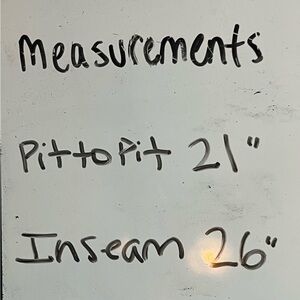 Measurements
Pit to Pit 21"
Inseam 26"